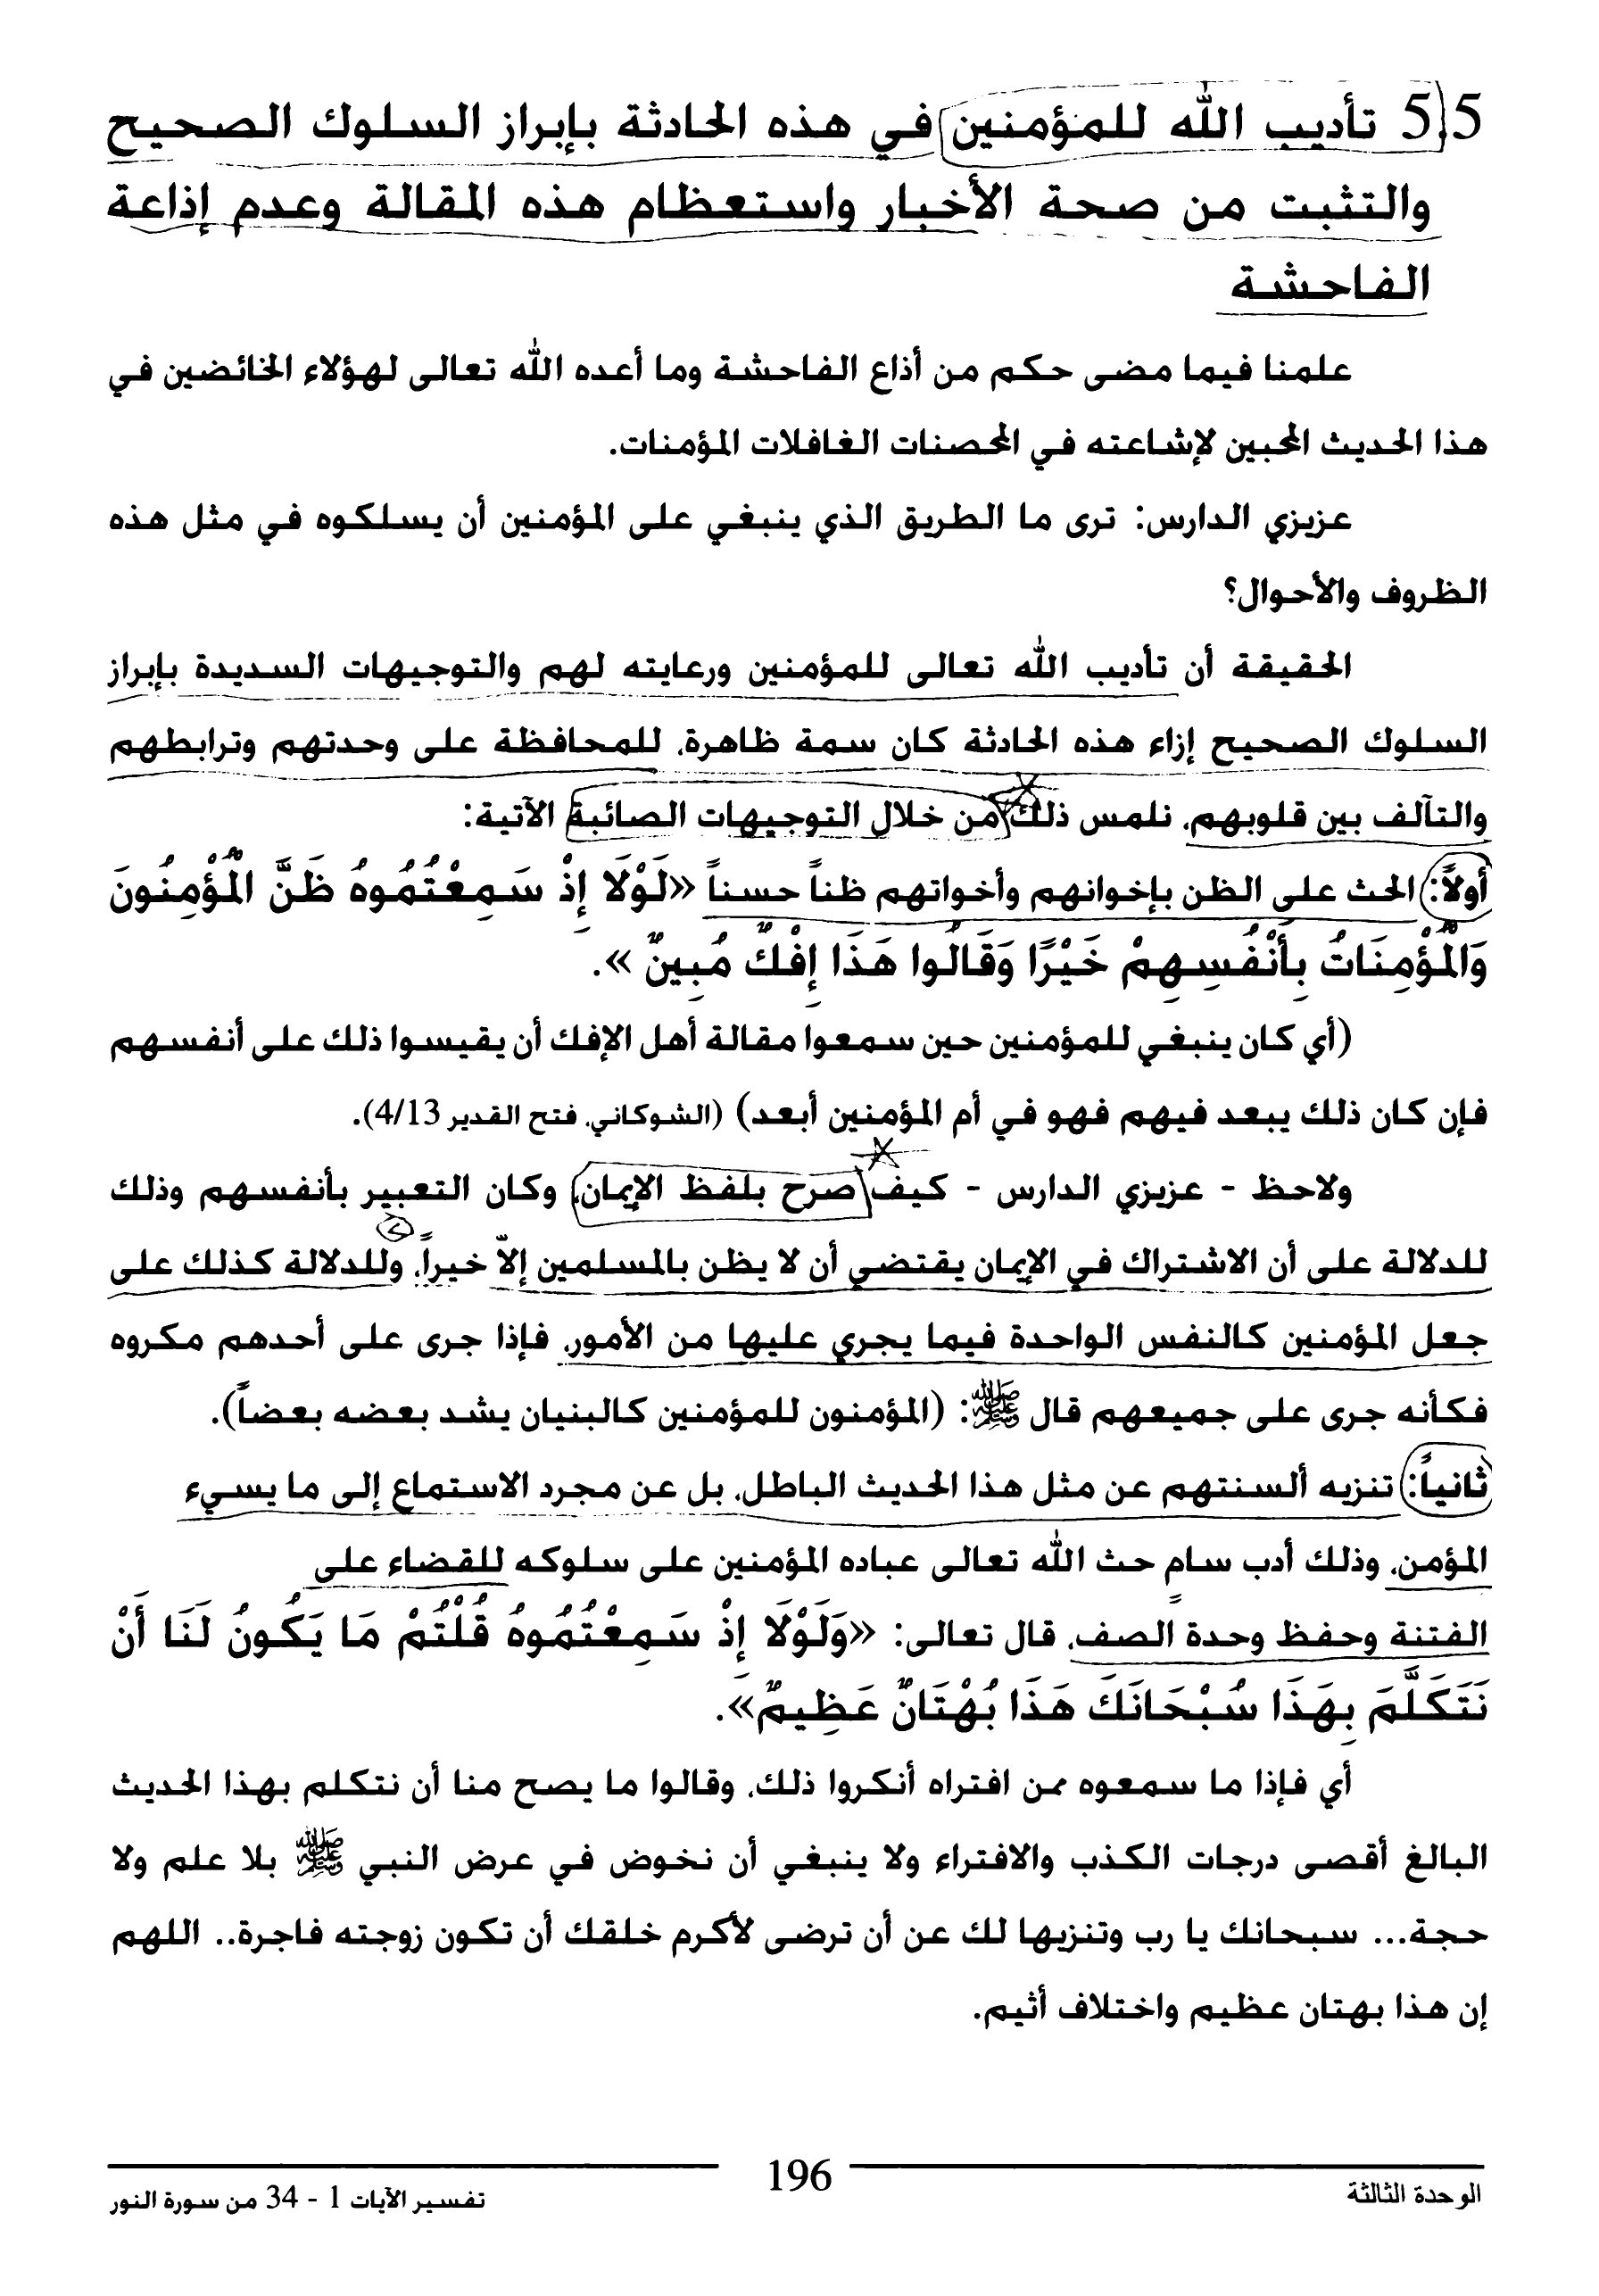 5.5 تأديب الله للمؤمنين في هذه الحادثة بإبراز السلوك الصحيح
والتثبت من صحة الأخبار واستعظام هذه المقالة وعدم إذاعة
الفاحشة
علمنا فيما مضى حكم من أذاع الفاحشة وما أعده الله تعالى لهؤلاء الخائضين في
هذا الحديث المحبين لإشاعته في المحصنات الغافلات المؤمنات.
عزيزي الدارس: ترى ما الطريق الذي ينبغي على المؤمنين أن يسلكوه في مثل هذه
الظروف والأحوال؟
الحقيقة أن تأديب الله تعالى للمؤمنين ورعايته لهم والتوجيهات السديدة بإبراز
السلوك الصحيح إزاء هذه الحادثة كان سمة ظاهرة، للمحافظة على وحدتهم وترابطهم
والتآلف بين قلوبهم، نلمس ذلك من خلال التوجيهات الصائبة الآتية:
أولاً: الحث على الظن بإخوانهم وأخواتهم ظناً حسناً «لَوْلَا إِذْ سَمِعْتُمُوهُ ظَنَّ الْمُؤْمِنُونَ
وَالْمُؤْمِنَاتُ بِأَنْفُسِهِمْ خَيْرًا وَقَالُوا هَذَا إِفْكٌ مُبِينٌ ».
(أي كان ينبغي للمؤمنين حين سمعوا مقالة أهل الإفك أن يقيسوا ذلك على أنفسهم
فإن كان ذلك يبعد فيهم فهو في أم المؤمنين أبعد) (الشوكاني، فتح القدير 4/13).
ولاحظ - عزيزي الدارس - كيف صرح بلفظ الإيمان، وكان التعبير بأنفسهم وذلك
للدلالة على أن الاشتراك في الإيمان يقتضي أن لا يظن بالمسلمين إلاّ خيراً، وللدلالة كذلك على
جعل المؤمنين كالنفس الواحدة فيما يجري عليها من الأمور، فإذا جرى على أحدهم مكروه
فكأنه جرى على جميعهم قال ﷺ: (المؤمنون للمؤمنين كالبنيان يشد بعضه بعضاً).
ثانياً: تنزيه ألسنتهم عن مثل هذا الحديث الباطل، بل عن مجرد الاستماع إلى ما يسيء
المؤمن، وذلك أدب سامٍ حث الله تعالى عباده المؤمنين على سلوكه للقضاء على
الفتنة وحفظ وحدة الصف، قال تعالى: «وَلَوْلَا إِذْ سَمِعْتُمُوهُ قُلْتُمْ مَا يَكُونُ لَنَا أَنْ
نَتَكَلَّمَ بِهَذَا سُبْحَانَكَ هَذَا بُهْتَانٌ عَظِيمٌ».
أي فإذا ما سمعوه ممن افتراه أنكروا ذلك، وقالوا ما يصح منا أن نتكلم بهذا الحديث
البالغ أقصى درجات الكذب والافتراء ولا ينبغي أن نخوض في عرض النبي ﷺ بلا علم ولا
حجة... سبحانك يا رب وتنزيها لك عن أن ترضى لأكرم خلقك أن تكون زوجته فاجرة.. اللهم
إن هذا بهتان عظيم واختلاف أثيم.
الوحدة الثالثة
196
تفسير الآيات 1 - 34 من سورة النور